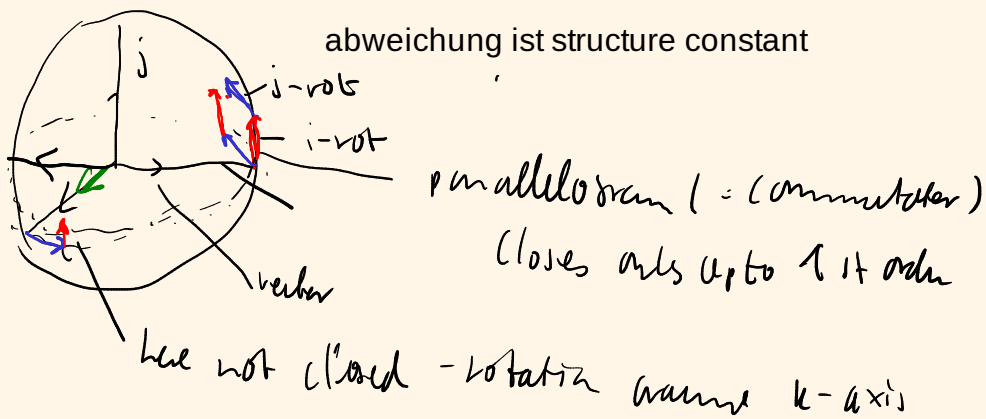 abweichung ist structure constant
j
j-rots
i-rot
parallelogram (= commutator)
closes only up to 1st order
here not closed - rotation around k-axis